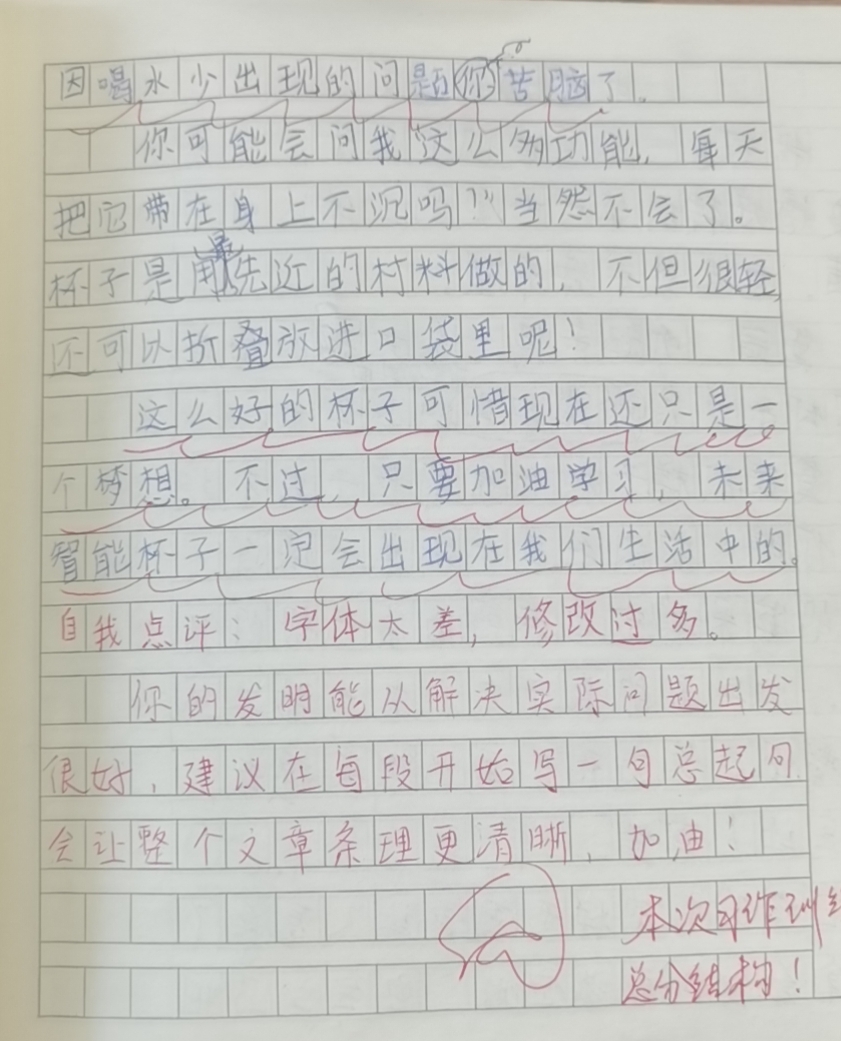 因喝水少出现的问题你苦脑了。
你可能会问我这么多功能，每天
把它带在身上不沉吗？当然不会了。
杯子是用最先近的材料做的，不但很轻，
还可以折叠放进口袋里呢！
这么好的杯子可惜现在还只是一
个梦想。不过，只要加油学习，未来
智能杯子一定会出现在我们生活中的。
自我点评：字体太差，修改过多。
你的发明能从解决实际问题出发
很好，建议在每段开始写一句总起句
会让整个文章条理更清晰，加油！
本次习作训练
总分结构！